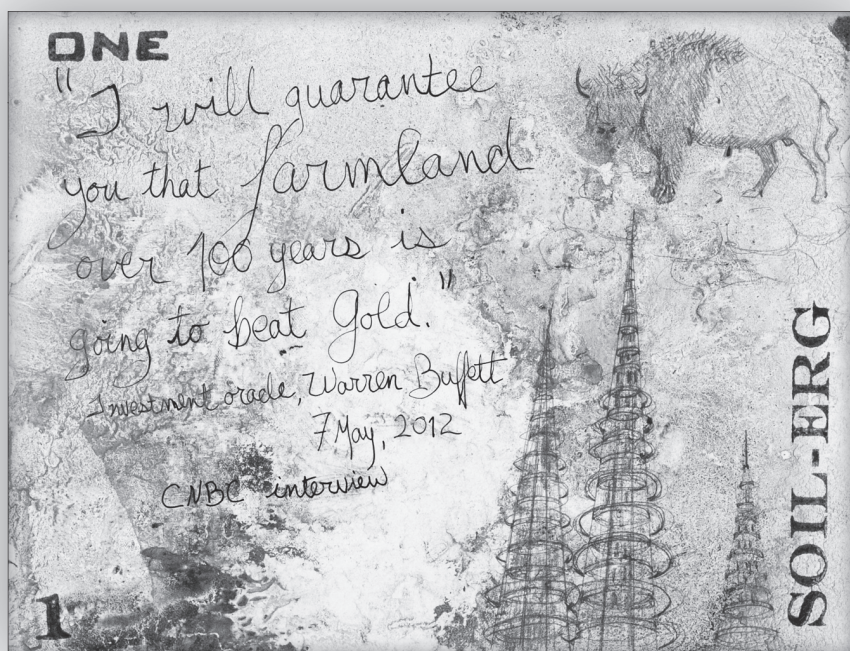 ONE
"I will guarantee
you that farmland
over 100 years is
going to beat Gold."
Investment oracle, Warren Buffett
7 May, 2012
CNBC interview
1
SOIL-ERG